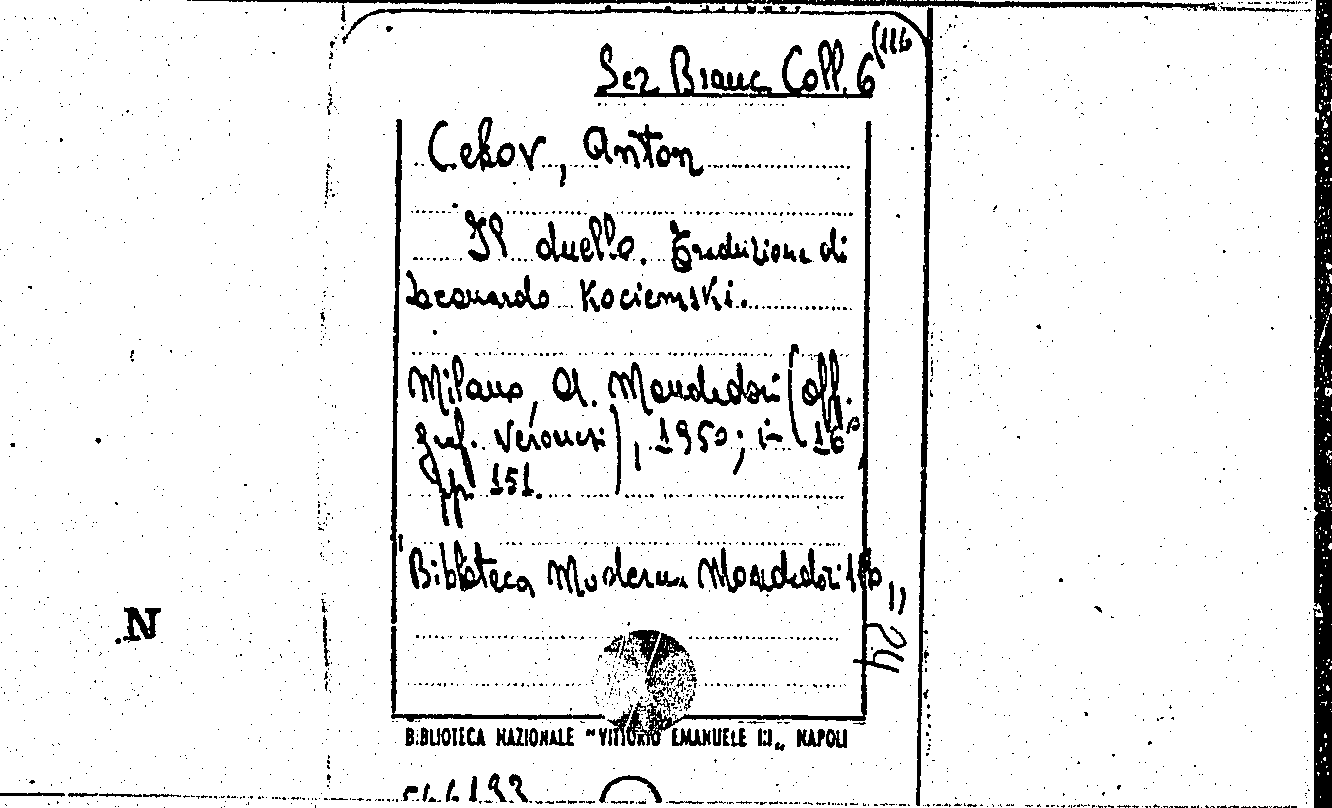 Sez Branc. Coll. 6 (116
Cehov, Anton
Il duello. Traduzione di
Leonardo Kociemski.
Milano, A. Mondadori (Off.
graf. Veronesi), 1950; in- 16°,
pp. 151.
Biblioteca Moderna Mondadori
24
BIBLIOTECA NAZIONALE "VITTORIO EMANUELE III„ NAPOLI
N